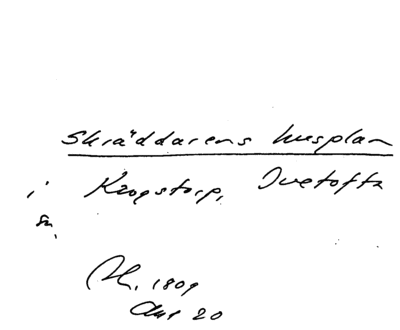 Skräddarens husplan
i Krogstorp, Ivetofta
sn.
Ak. 1809
Akt 20